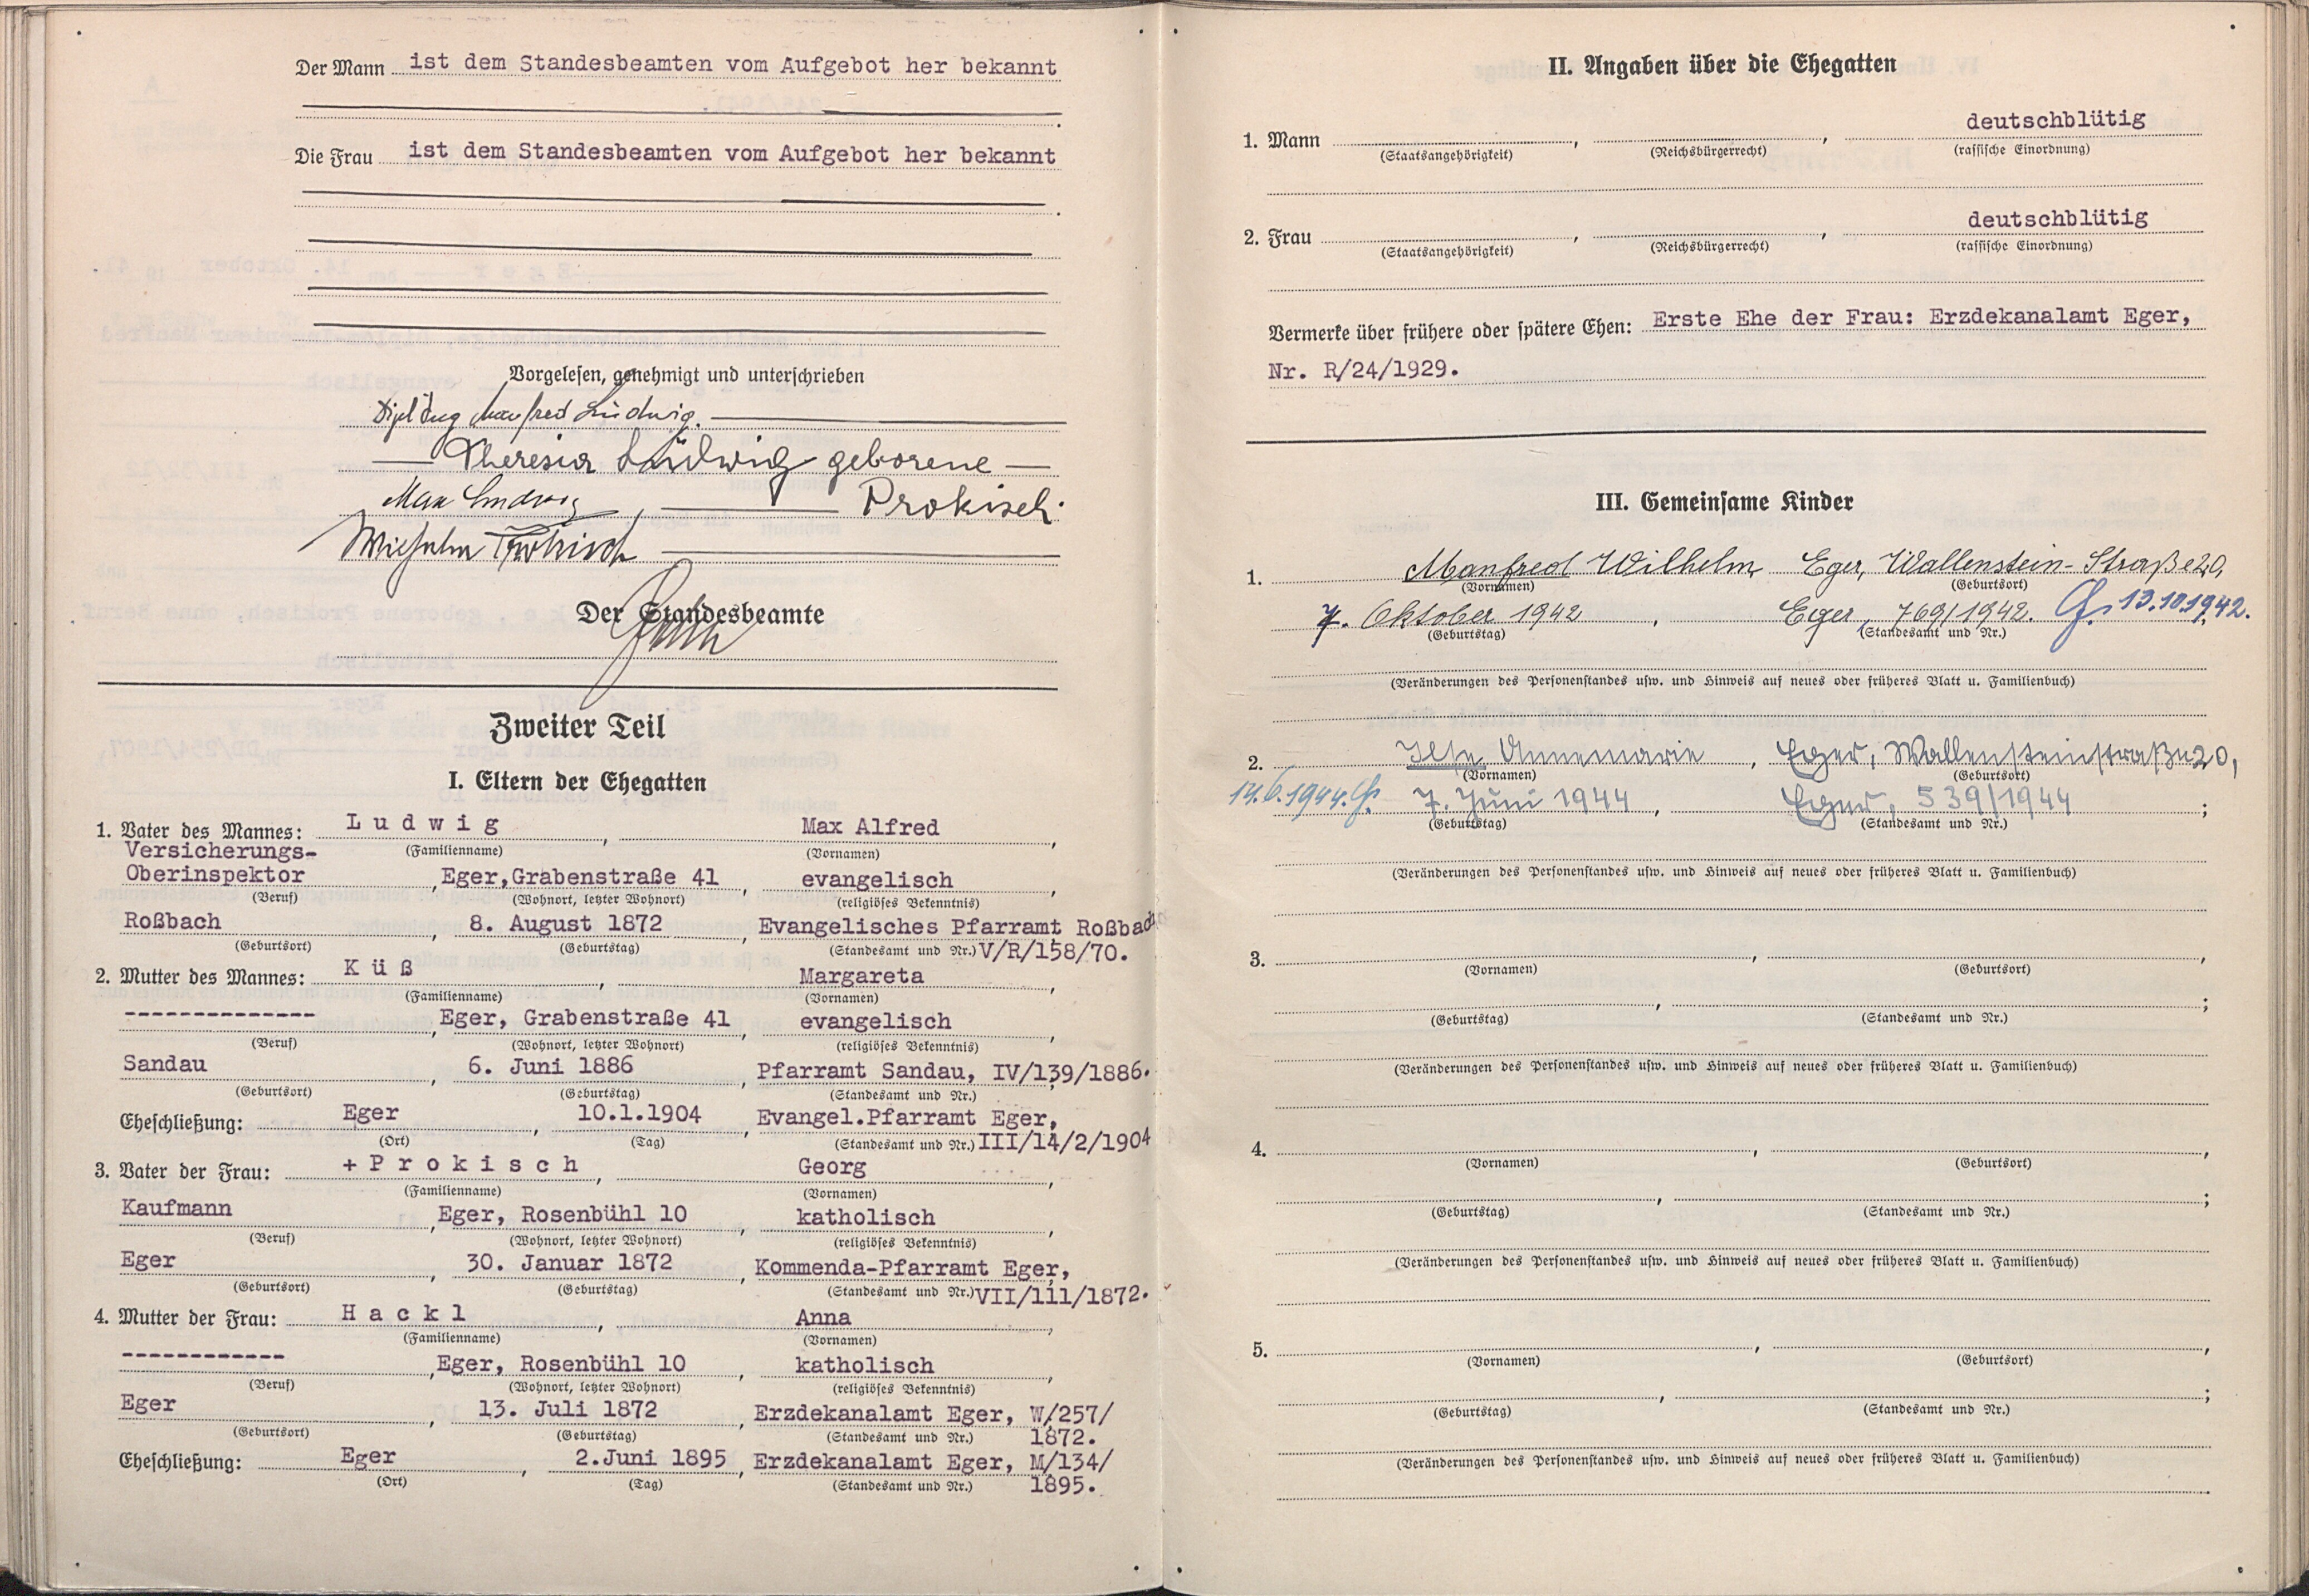 Der Mann ist dem Standesbeamten vom Aufgebot her bekannt
Die Frau ist dem Standesbeamten vom Aufgebot her bekannt
Vorgelesen, genehmigt und unterschrieben
Dipl Ing Manfred Ludwig.
Theresia Ludwig geborene
Max Ludwig, Prokisch.
Wilhelm Prokisch
Der Standesbeamte
Zweiter Teil
I. Eltern der Ehegatten
1. Vater des Mannes: Ludwig, Max Alfred,
(Familienname) (Vornamen)
Versicherungs-
Oberinspektor, Eger, Grabenstraße 41, evangelisch,
(Beruf) (Wohnort, letzter Wohnort) (religiöses Bekenntnis)
Roßbach, 8. August 1872, Evangelisches Pfarramt Roßbach
(Geburtsort) (Geburtstag) (Standesamt und Nr.) V/R/158/70.
2. Mutter des Mannes: Küß, Margareta,
(Familienname) (Vornamen)
--------------, Eger, Grabenstraße 41, evangelisch,
(Beruf) (Wohnort, letzter Wohnort) (religiöses Bekenntnis)
Sandau, 6. Juni 1886, Pfarramt Sandau, IV/139/1886.
(Geburtsort) (Geburtstag) (Standesamt und Nr.)
Eheschließung: Eger, 10.1.1904, Evangel.Pfarramt Eger,
(Ort) (Tag) (Standesamt und Nr.) III/14/2/1904
3. Vater der Frau: +Prokisch, Georg,
(Familienname) (Vornamen)
Kaufmann, Eger, Rosenbühl 10, katholisch,
(Beruf) (Wohnort, letzter Wohnort) (religiöses Bekenntnis)
Eger, 30. Januar 1872, Kommenda-Pfarramt Eger,
(Geburtsort) (Geburtstag) (Standesamt und Nr.) VII/111/1872.
4. Mutter der Frau: Hackl, Anna,
(Familienname) (Vornamen)
------------, Eger, Rosenbühl 10, katholisch,
(Beruf) (Wohnort, letzter Wohnort) (religiöses Bekenntnis)
Eger, 13. Juli 1872, Erzdekanalamt Eger, W/257/
(Geburtsort) (Geburtstag) (Standesamt und Nr.) 1872.
Eheschließung: Eger, 2.Juni 1895, Erzdekanalamt Eger, M/134/
(Ort) (Tag) (Standesamt und Nr.) 1895.
II. Angaben über die Ehegatten
1. Mann , , deutschblütig
(Staatsangehörigkeit) (Reichsbürgerrecht) (rassische Einordnung)
2. Frau , , deutschblütig
(Staatsangehörigkeit) (Reichsbürgerrecht) (rassische Einordnung)
Vermerke über frühere oder spätere Ehen: Erste Ehe der Frau: Erzdekanalamt Eger,
Nr. R/24/1929.
III. Gemeinsame Kinder
1. Manfred Wilhelm, Eger, Wallenstein-Straße 20,
(Vornamen) (Geburtsort)
7. Oktober 1942, Eger, 769/1942. 13.10.1942.
(Geburtstag) (Standesamt und Nr.)
(Veränderungen des Personenstandes usw. und Hinweis auf neues oder früheres Blatt u. Familienbuch)
2. Ilse Annemarie, Eger, Wallensteinstraße 20,
(Vornamen) (Geburtsort)
14.6.1944. 7. Juni 1944, Eger, 539/1944;
(Geburtstag) (Standesamt und Nr.)
(Veränderungen des Personenstandes usw. und Hinweis auf neues oder früheres Blatt u. Familienbuch)
3. , ,
(Vornamen) (Geburtsort)
, ;
(Geburtstag) (Standesamt und Nr.)
(Veränderungen des Personenstandes usw. und Hinweis auf neues oder früheres Blatt u. Familienbuch)
4. , ,
(Vornamen) (Geburtsort)
, ;
(Geburtstag) (Standesamt und Nr.)
(Veränderungen des Personenstandes usw. und Hinweis auf neues oder früheres Blatt u. Familienbuch)
5. , ,
(Vornamen) (Geburtsort)
, ;
(Geburtstag) (Standesamt und Nr.)
(Veränderungen des Personenstandes usw. und Hinweis auf neues oder früheres Blatt u. Familienbuch)